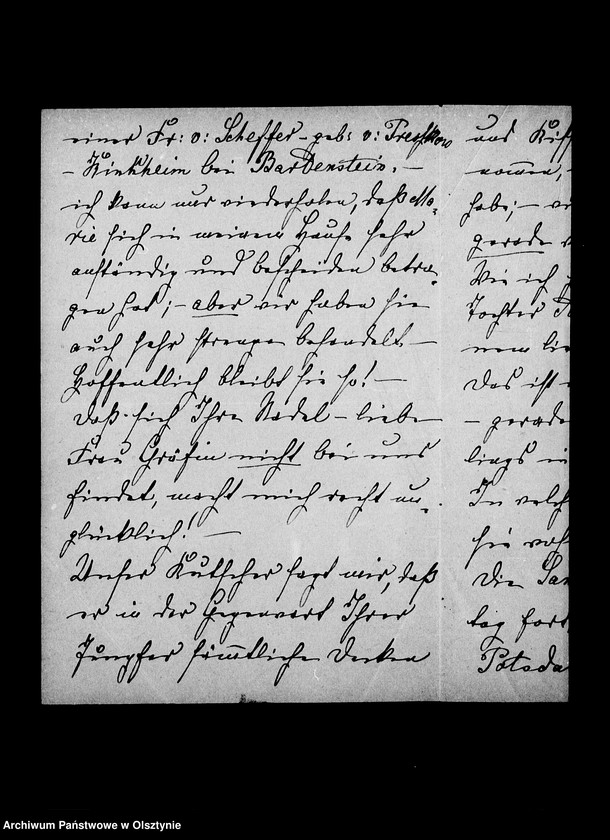 einer Fr: v: Scheffer – geb: v: Treskow
– Kinkheim bei Bartenstein. –
ich kann nur wiederholen, daß Ma-
rie sich in meinem Hause sehr
anständig und bescheiden betra-
gen hat; – aber wir haben sie
auch sehr strenge behandelt –
Hoffentlich bleibt sie so! –
Daß sich Ihre Nadel – liebe
Frau Gräfin nicht bei uns
findet, macht mich recht un-
glücklich! –
Unser Kutscher sagt mir, daß
er in der Gegenwart Ihrer
Jungfer sämmtliche Decken
und
nommen,
habe; –
gerade
Wie ich
Tochter
nem
Das ist
– gerade
lings in
In
sie
Die
tag
Potsda
Archiwum Państwowe w Olsztynie